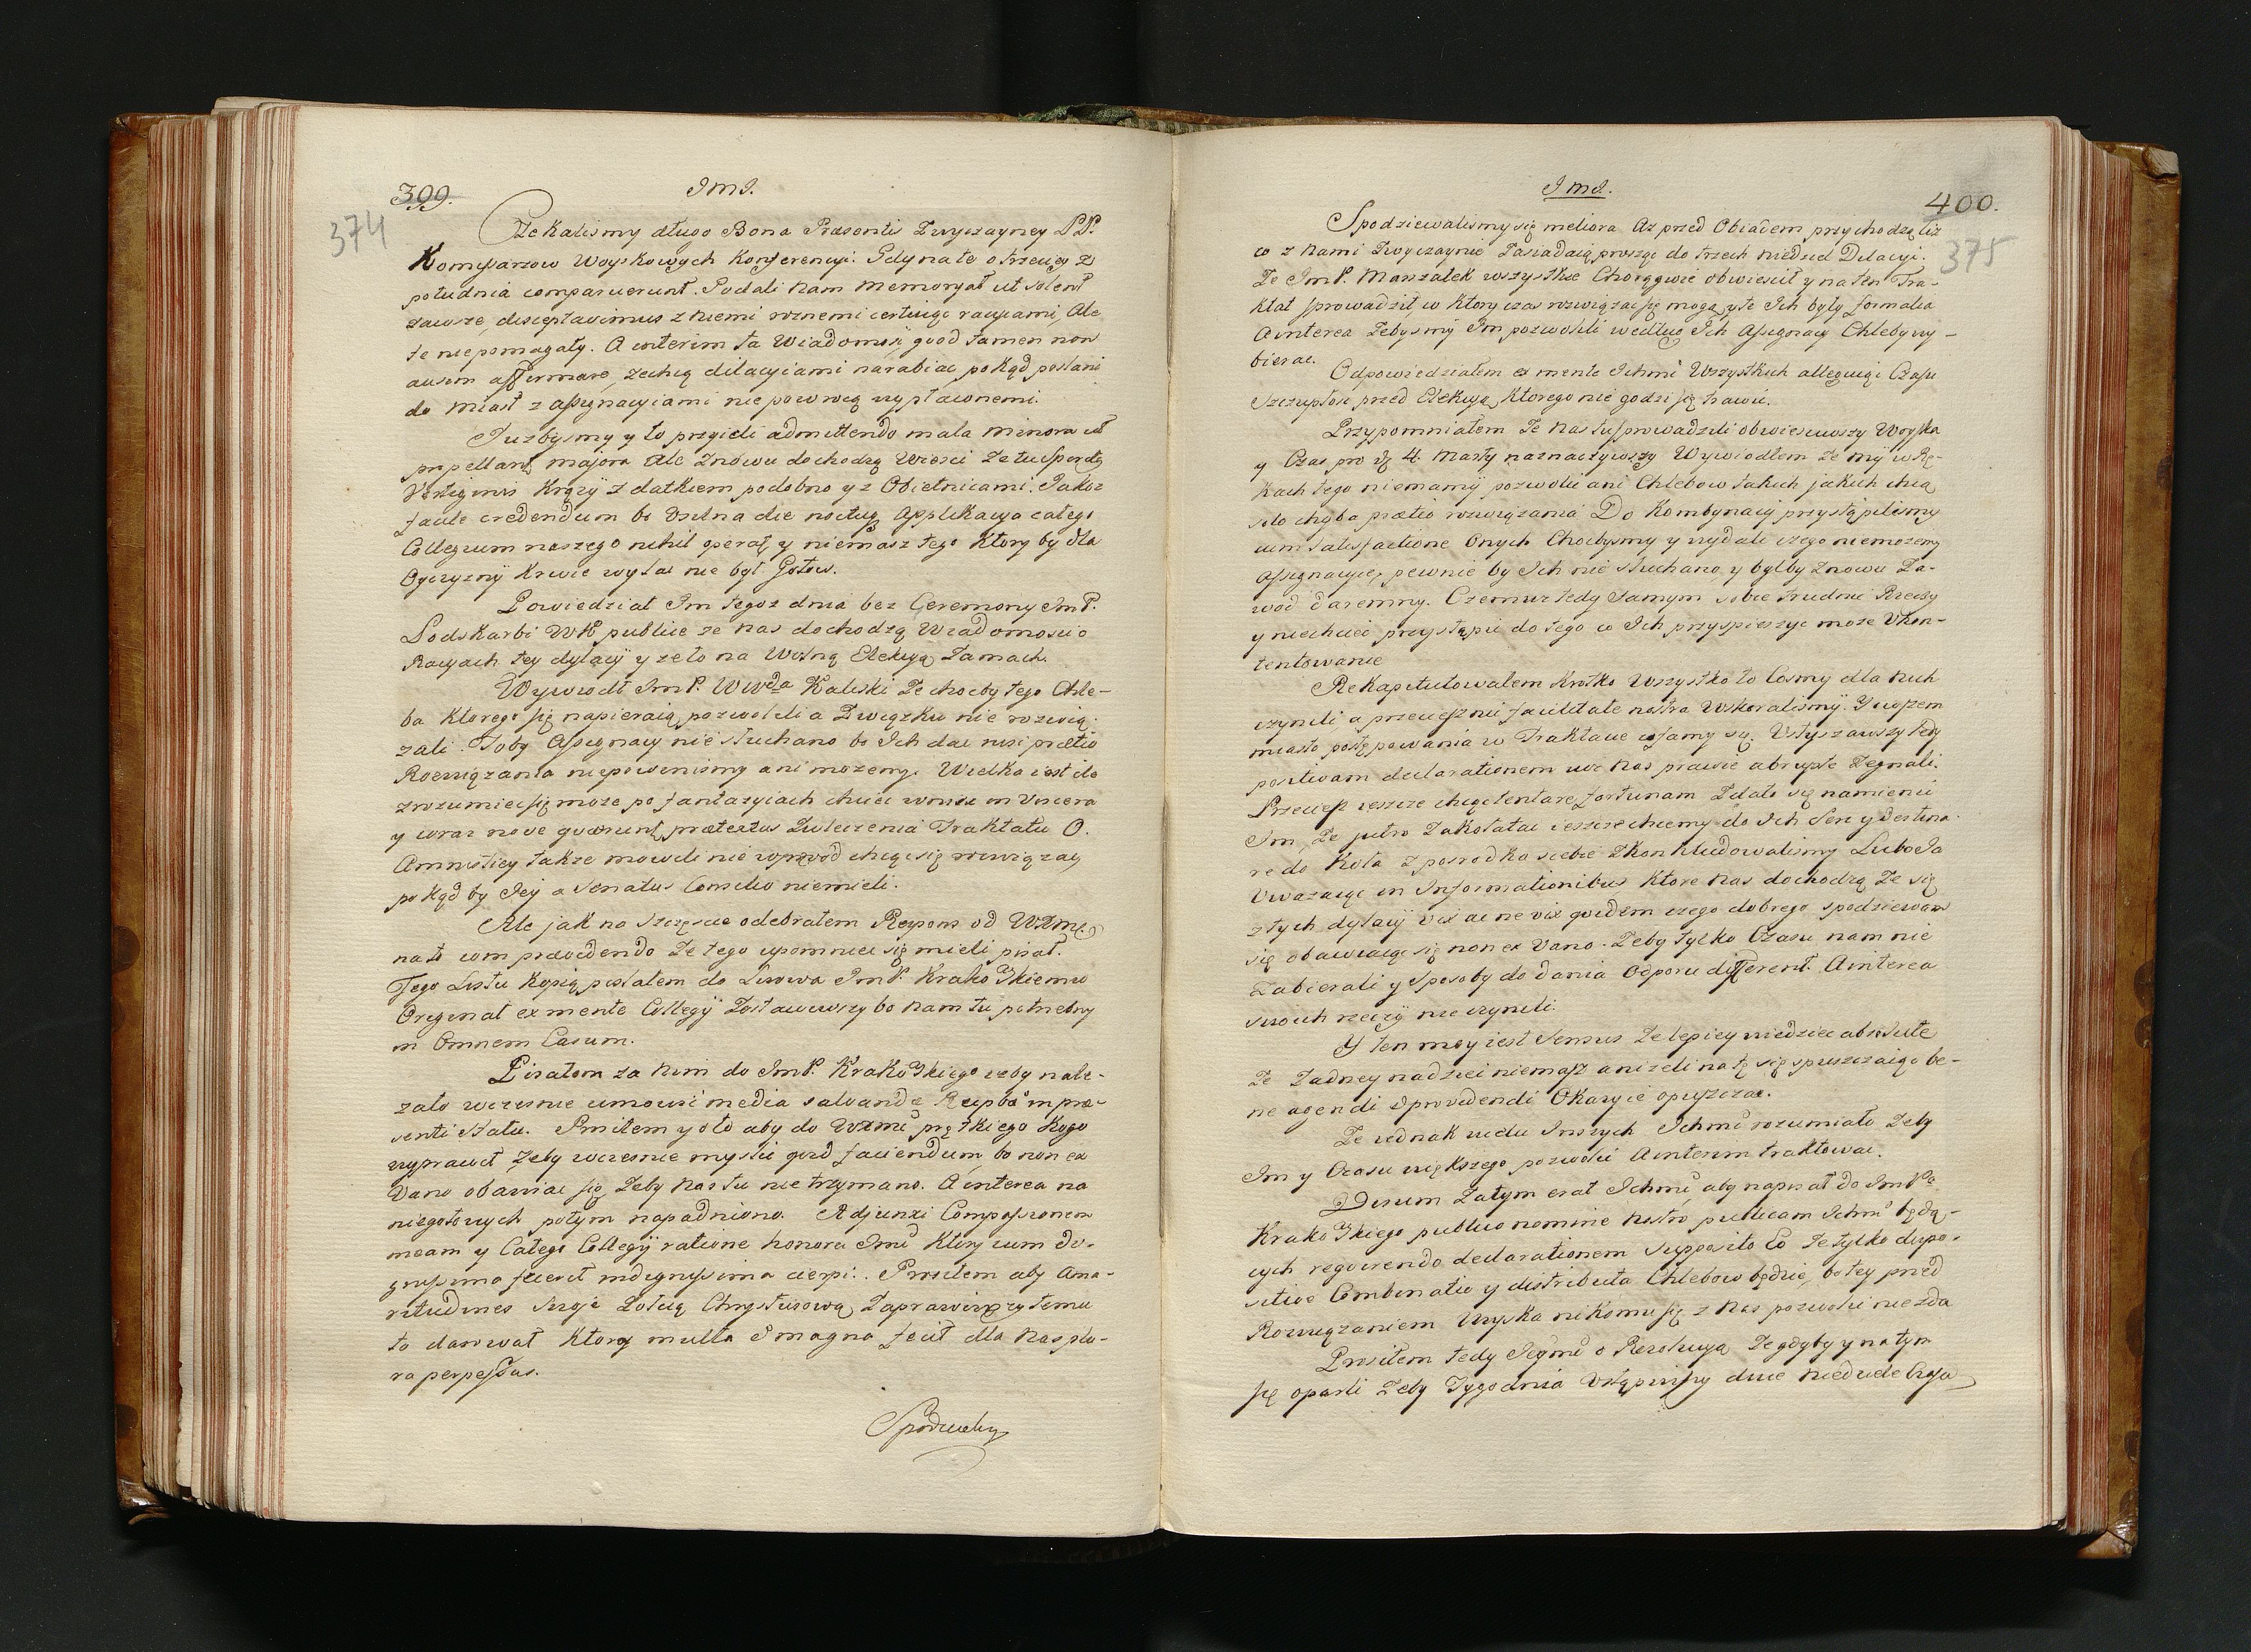 399. JmJ.
374
Czekalismy długo Bona Praesentis Zwyczayney PP.
Komyssarzow Woyskowych Konferencyi. Gdy na te o trzeciey z
południa comparuerunt. Podali Nam Memoryał ut solent
zawsze, disceptavimus z niemi roznemi certuiąc racyiami, Ale
te niepomagały. A interim ta Wiadomość, quod tamen non
ausim affirmare, ze chcą dilacyiami narabiac, pokąd posłani
do Miast z assignacyiami nie powrocą wypłaconemi.
Juzbysmy y to przyieli admittendo mala minora ut
propellant majora Ale znowu dochodzą Wiesci ze tu Sperdy
Vestigium Krązy z datkiem podobno y z Obietnicami. Jakoz
facile credendum bo Usilna die noctuq Applikacya całego
Collegium naszego nihil operat, y niemasz tego ktory by dla
Oyczyzny Krwie wylac nie był Gotow.
Powiedział Im tegoz dnia bez Ceremony JmP.
Podskarbi WK publice ze Nas dochodzą Wiadomosci o
Racyach tey dylacy y ze to na Wolną Elekcyą Zamach.
Wywiodł JmP. Wwda Kaliski Ze chocby tego Chle-
ba ktorego się napieraią pozwolili a Związku nie rozwią-
zali. Toby Assignacy nie słuchano bo Ich dac nisi praetio
Rozwiązania niepowinismy ani mozemy. Wielka iest ile
zrozumiec się moze po fantazyiach chciec wnisc in Viscera
y coraz nove quaerunt praetextus Zwleczenia Traktatu O
Amnistiey takze mowili nie wprzod chcąc się rozwiązac,
pokąd by Jey a Senatus Consilio niemieli.
Ale jak na szczęscie odebrałem Respons od WXMci
na to com praevidendo Ze tego upomniec się mieli pisał.
Tego Listu Kopią posłałem do Lwowa JmP. Krakowskiemu
Oryginał ex mente Collegy Zostawiwszy bo Nam tu potrzebny
in Omnem Casum.
Pisałem za nim do JmP. Krakowskiego zeby nale-
zało wczesnie umowic media salvandae Reipbcae in prae-
senti Statu. Prosiłem y o to aby do WXMci prętkiego Kogo
wyprawił Zeby wczesnie myslic quid faciendum, bo non ex
Vano obawiac się Zeby Nas tu nie trzymano. A interea na
niegotowych potym napadniono. Adjunxi Compassionem
meam y Całego Collegy ratione honoru Jmci Ktory cum di-
gnissima fecerit indignissima cierpi. Prosiłem aby Ama-
ritudines Swoje Zołcią Chrystusową Zaprawiwszy temu
to darował Ktory multa & magna fecit dla Nas plu-
ra perpessus.
Spodziewaly
JmJ. 400.
375
Spodziewalismy się meliora Az przed Obiadem przychodzą Ciz
co z Nami Zwyczaynie Zasiadaią prosząc do trzech Niedziel Dilacyi.
Ze JmP. Marszałek wszystkie Chorągwie obwiescił y na ten Tra-
ktat sprowadził, w Ktory czas rozwiązac się mogą, y te Ich były formalia
A interea Zebysmy Im pozwolili według Ich Assignacy Chleby wy-
bierac.
Odpowiedziałem ex mente Ichmci Wszystkich alleguiąc Czasu
szczupłosc przed Elekcyą, Ktorego nie godzi się trawic.
Przypomniałem Ze Nas tu sprowadzili obwiesciwszy Woyska
y Czas pro d. 4. Marty naznaczywszy Wywiodłem ze my w Rę-
kach tego niemamy pozwolic ani Chlebow takich jakich chcą
solo chyba praetio rozwiązania Do Kombynacy przystąpilismy
cum satisfactione Onych Chocbysmy y wydali czego niemozemy
Assignacyie, pewnie by Ich nie słuchano, y byłby znowu Za-
wod daremny. Czemuz tedy samym sobie trudnic Rzeczy
y niechciec przystąpic do tego co Ich przyspieszyc moze Ukon-
tentowanie
Rekapitulowałem Krotko Wszystko to Cosmy dla Nich
czynili, a przeciesz nic facilitate nostra Wskoralismy. Y owszem
miasto postępowania w Traktacie cofamy się. Usłyszawszy tedy
positivam declarationem wc Nas prawie abrupte Zegnali.
Przeciesz ieszcze chcąc tentare fortunam Zdało się namienic
Im, Ze jutro Zakołatac ieszcze chcemy do Ich Serc y destina-
re do Koła z posrodka siebie Zkonkludowalismy Lubo Ja
Uwazaiąc in Informationibus Ktore Nas dochodzą Ze się
z tych dylacy vix ac ne vix quidem czego dobrego spodziewam
się obawiaiąc się non ex Vano. Zeby tylko Czasu nam nie
Zabierali y Sposoby do dania Odporu different. A interea
swoich rzeczy nie czynili.
Y ten moy iest Sensus Ze lepiey wiedziec absolute
Ze Zadney nadziei niemasz anizeli na tę się spuszczaiąc be-
ne agendi & providendi Okazyie opuszczac.
Ze iednak wielu Inszych Ichmciow rozumiało Zeby
Im y Czasu większego pozwolic A interim traktowac.
Visum Zatym erat Ichmci aby napisał do JmPa
Krakowskiego publico nomine nostro publicam Ichmci będą-
cych requirendo declarationem supposito Eo Ze tylko dispo-
sitive Combinatio y distributa Chlebow będzie, bo tey przed
Rozwiązaniem Woyska nikomu się z Nas pozwolic nie zda
Prosiłem tedy Jegmci o Rezolucyą Ze gdyby y na tym
się oparli Zeby Tygodnia Ustąpiwszy dwie Niedziele Czasu